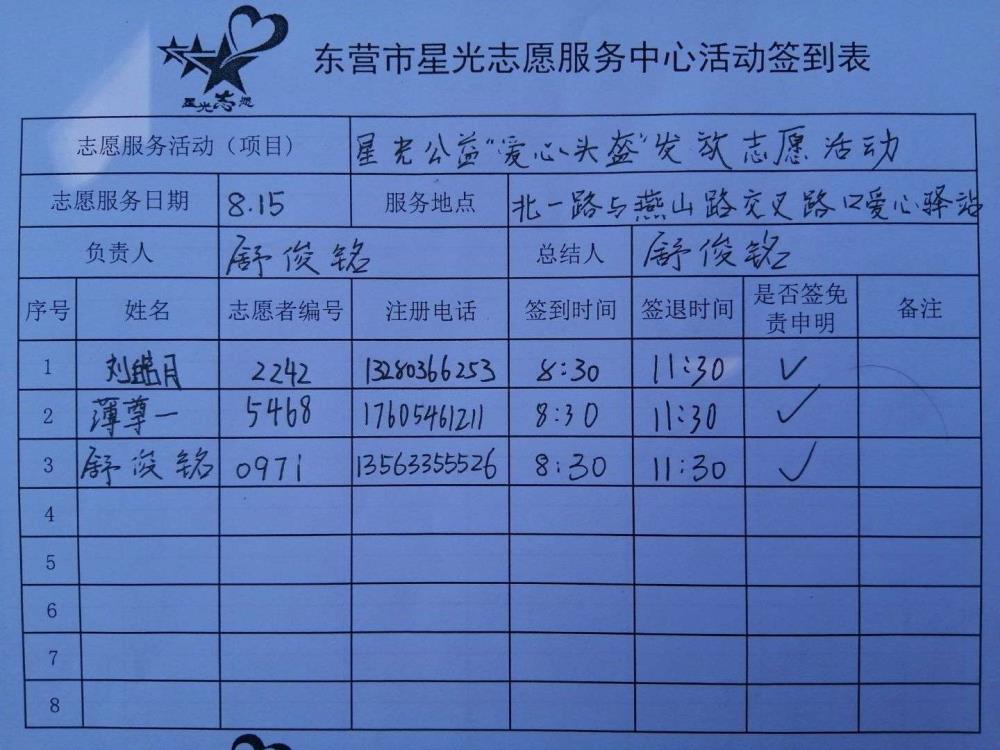 星光志愿
东营市星光志愿服务中心活动签到表
志愿服务活动（项目） 星光公益“爱心头盔”发放志愿活动
志愿服务日期 8.15 服务地点 北一路与燕山路交叉路口爱心驿站
负责人 舒俊铭 总结人 舒俊铭
序号 姓名 志愿者编号 注册电话 签到时间 签退时间 是否签免责申明 备注
1 刘皓月 2242 13280366253 8:30 11:30 ✓
2 薄尊一 5468 17605461211 8:30 11:30 ✓
3 舒俊铭 0971 13563355526 8:30 11:30 ✓
4
5
6
7
8